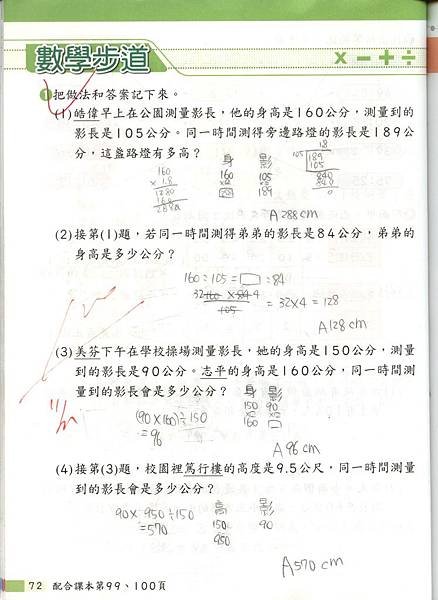 數學步道
× − + ÷
1 把做法和答案記下來。
(1) 皓偉早上在公園測量影長，他的身高是160公分，測量到的
影長是105公分。同一時間測得旁邊路燈的影長是189公
分，這盞路燈有多高？
身 影
160 105
189
160
× 1.8
1280
160
288.0
1.8
105 189
105
840
840
0
A 288 cm
(2) 接第(1)題，若同一時間測得弟弟的影長是84公分，弟弟的
身高是多少公分？
160:105=□:84
32 160×84 4
105
=32×4=128
A 128 cm
(3) 美芬下午在學校操場測量影長，她的身高是150公分，測量
到的影長是90公分。志平的身高是160公分，同一時間測
量到的影長會是多少公分？
身 影
150 90
160 □
(90×160)÷150
=96
A 96 cm
(4) 接第(3)題，校園裡篤行樓的高度是9.5公尺，同一時間測量
到的影長會是多少公分？
90×950÷150
=570
高 影
150 90
950
A 570 cm
72 配合課本第99、100頁